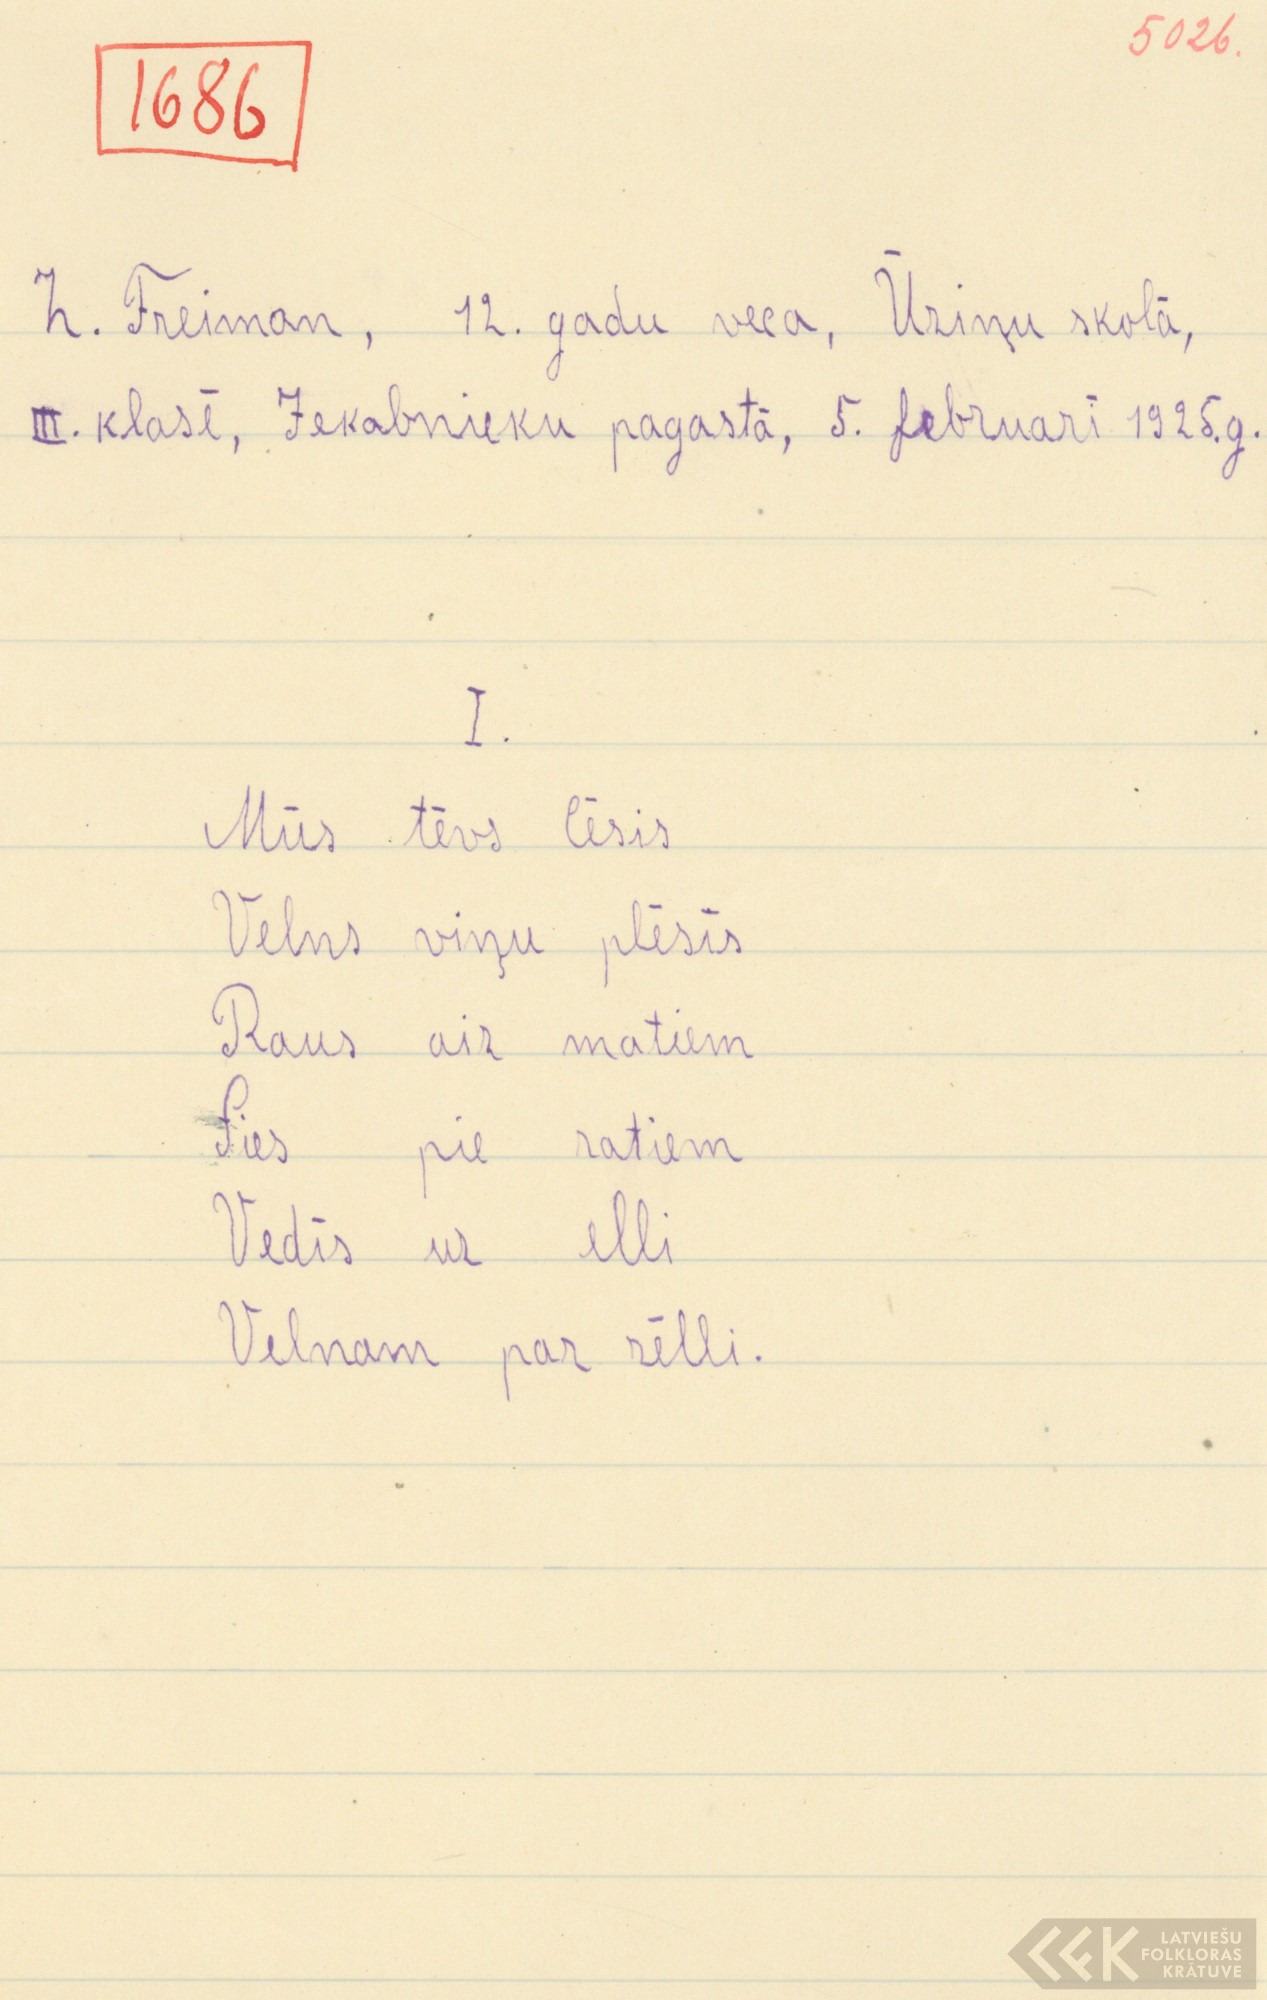 5026.
1686
Z. Freiman, 12. gadu veca, Ūziņu skolā,
III. klasē, Jekabnieku pagastā, 5. februarī 1925.g.
I.
Mūs tēvs lēsis
Velns viņu plēsīs
Raus aiz matiem
Sies pie ratiem
Vedīs uz elli
Velnam par zēlli.
LATVIEŠU
FOLKLORAS
KRĀTUVE